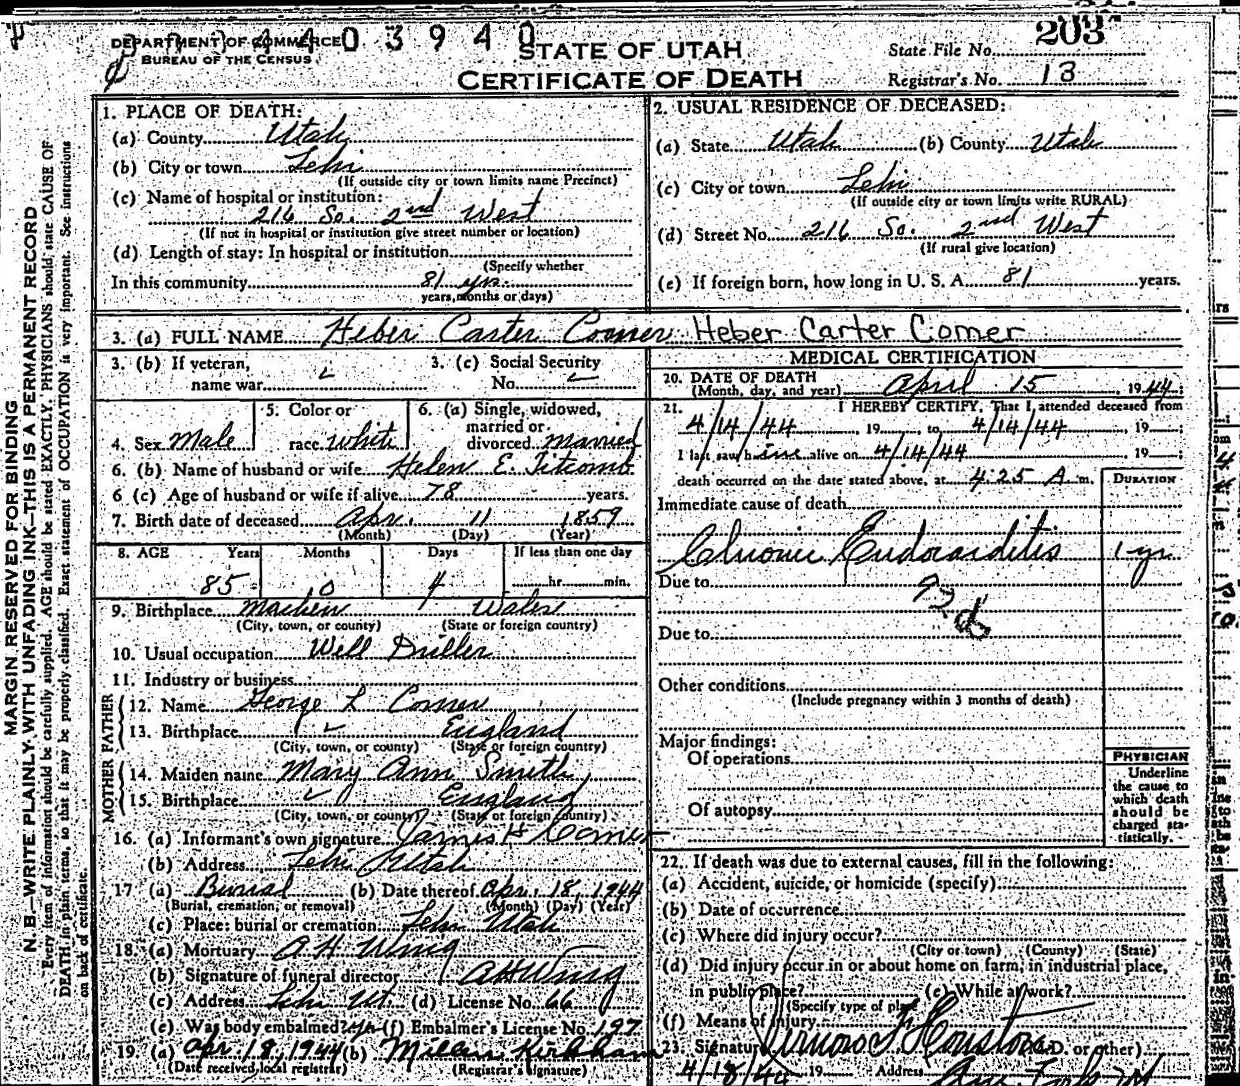 DEPARTMENT OF COMMERCE
BUREAU OF THE CENSUS
4 4 0 3 9 4 0
STATE OF UTAH
CERTIFICATE OF DEATH
State File No. 203
Registrar's No. 13
MARGIN RESERVED FOR BINDING
N. B.—WRITE PLAINLY, WITH UNFADING INK—THIS IS A PERMANENT RECORD
Every item of information should be carefully supplied. AGE should be stated EXACTLY. PHYSICIANS should state CAUSE OF
DEATH in plain terms, so that it may be properly classified. Exact statement of OCCUPATION is very important. See instructions
on back of certificate.
1. PLACE OF DEATH:
(a) County Utah
(b) City or town Lehi
(If outside city or town limits name Precinct)
(c) Name of hospital or institution:
216 So. 2nd West
(If not in hospital or institution give street number or location)
(d) Length of stay: In hospital or institution
(Specify whether
In this community 81 yrs.
years, months or days)
2. USUAL RESIDENCE OF DECEASED:
(a) State Utah (b) County Utah
(c) City or town Lehi
(If outside city or town limits write RURAL)
(d) Street No. 216 So. 2nd West
(If rural give location)
(e) If foreign born, how long in U. S. A. 81 years.
3. (a) FULL NAME Heber Carter Comer Heber Carter Comer
3. (b) If veteran,
name war
3. (c) Social Security
No.
4. Sex Male
5. Color or
race white
6. (a) Single, widowed,
married or
divorced married
6. (b) Name of husband or wife Helen E. Titcomb
6 (c) Age of husband or wife if alive 78 years.
7. Birth date of deceased Apr. 11 1859
(Month) (Day) (Year)
8. AGE Years Months Days If less than one day
85 0 4 hr. min.
9. Birthplace Machen Wales
(City, town, or county) (State or foreign country)
10. Usual occupation Well Driller
11. Industry or business
FATHER
12. Name George L Comer
13. Birthplace England
(City, town, or county) (State or foreign country)
MOTHER
14. Maiden name Mary Ann Smith
15. Birthplace England
(City, town, or county) (State or foreign country)
16. (a) Informant's own signature James H Comer
(b) Address Lehi Utah
17 (a) Burial (b) Date thereof Apr. 18, 1944
(Burial, cremation, or removal) (Month) (Day) (Year)
(c) Place: burial or cremation Lehi Utah
18. (a) Mortuary A. H. Wing
(b) Signature of funeral director A H Wing
(c) Address Lehi Ut. (d) License No. 66
(e) Was body embalmed? yes (f) Embalmer's License No. 197
19 (a) Apr 18, 1944 (b) Millan Kirkham
(Date received local registrar) (Registrar's signature)
MEDICAL CERTIFICATION
20. DATE OF DEATH
(Month, day, and year) April 15, 1944;
21. I HEREBY CERTIFY, That I attended deceased from
4/14/44, 19 , to 4/14/44, 19 ;
I last saw him alive on 4/14/44, 19 ;
death occurred on the date stated above, at 4:25 A m.
DURATION
Immediate cause of death
Chronic Endocarditis 1 yr.
Due to
Due to
Other conditions
(Include pregnancy within 3 months of death)
Major findings:
Of operations
Of autopsy
PHYSICIAN
Underline
the cause to
which death
should be
charged sta-
tistically.
22. If death was due to external causes, fill in the following:
(a) Accident, suicide, or homicide (specify)
(b) Date of occurrence
(c) Where did injury occur?
(City or town) (County) (State)
(d) Did injury occur in or about home on farm, in industrial place,
in public place? (e) While at work?
(Specify type of place)
(f) Means of injury
23. Signature Houston (M.D. or other)
4/18/44 19 Address